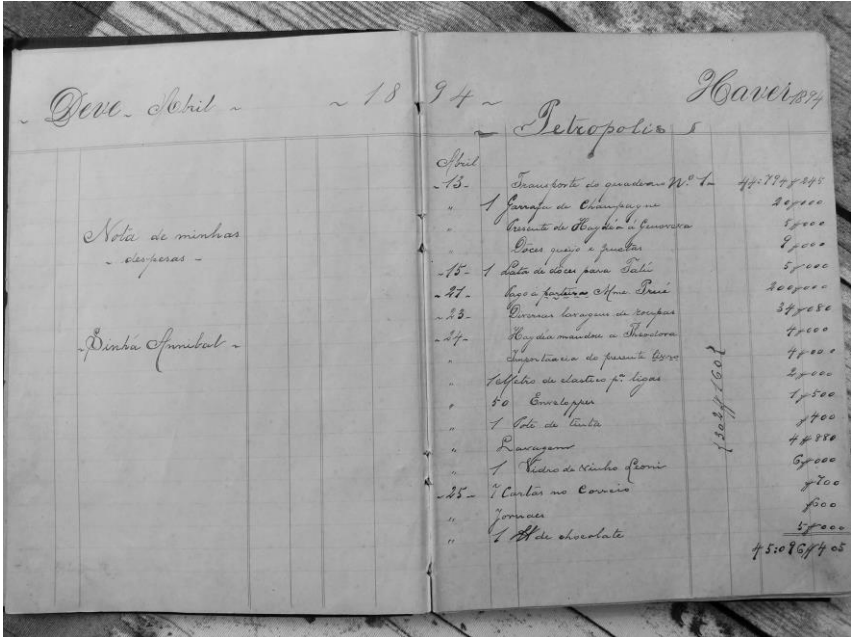 Deve - Abril ~ ~ 18 94 ~ Haver 1894
~ Petropolis
Nota de minhas
- despesas -
- Sinhá Annibal -
Abril
- 13 - Transporte do quaderno Nº 1 - 44:794$245
" 1 Garrafa de Champagne 20$000
" Presente de Haydéa á Genoveva 5$000
" Dôces queijo e frutas 9$000
- 15 - 1 Lata de dôces para Tatú 5$000
- 21 - Pago á parteira Mme 200$000
- 23 - Diversas lavagens de roupas 34$080
- 24 - Haydéa mandou a Theodora 4$000
" Importancia do presente 4$000
" 1 Metro de elastico pª ligas 2$000
" 50 Enveloppes 1$500
" 1 Pote de tinta $400
" Lavagem 4$880
" 1 Vidro de vinho 6$000
- 25 - 7 Cartas no Correio $700
" Jornaes $600
" 1 de chocolate 5$000
{302$160}
45:096$405